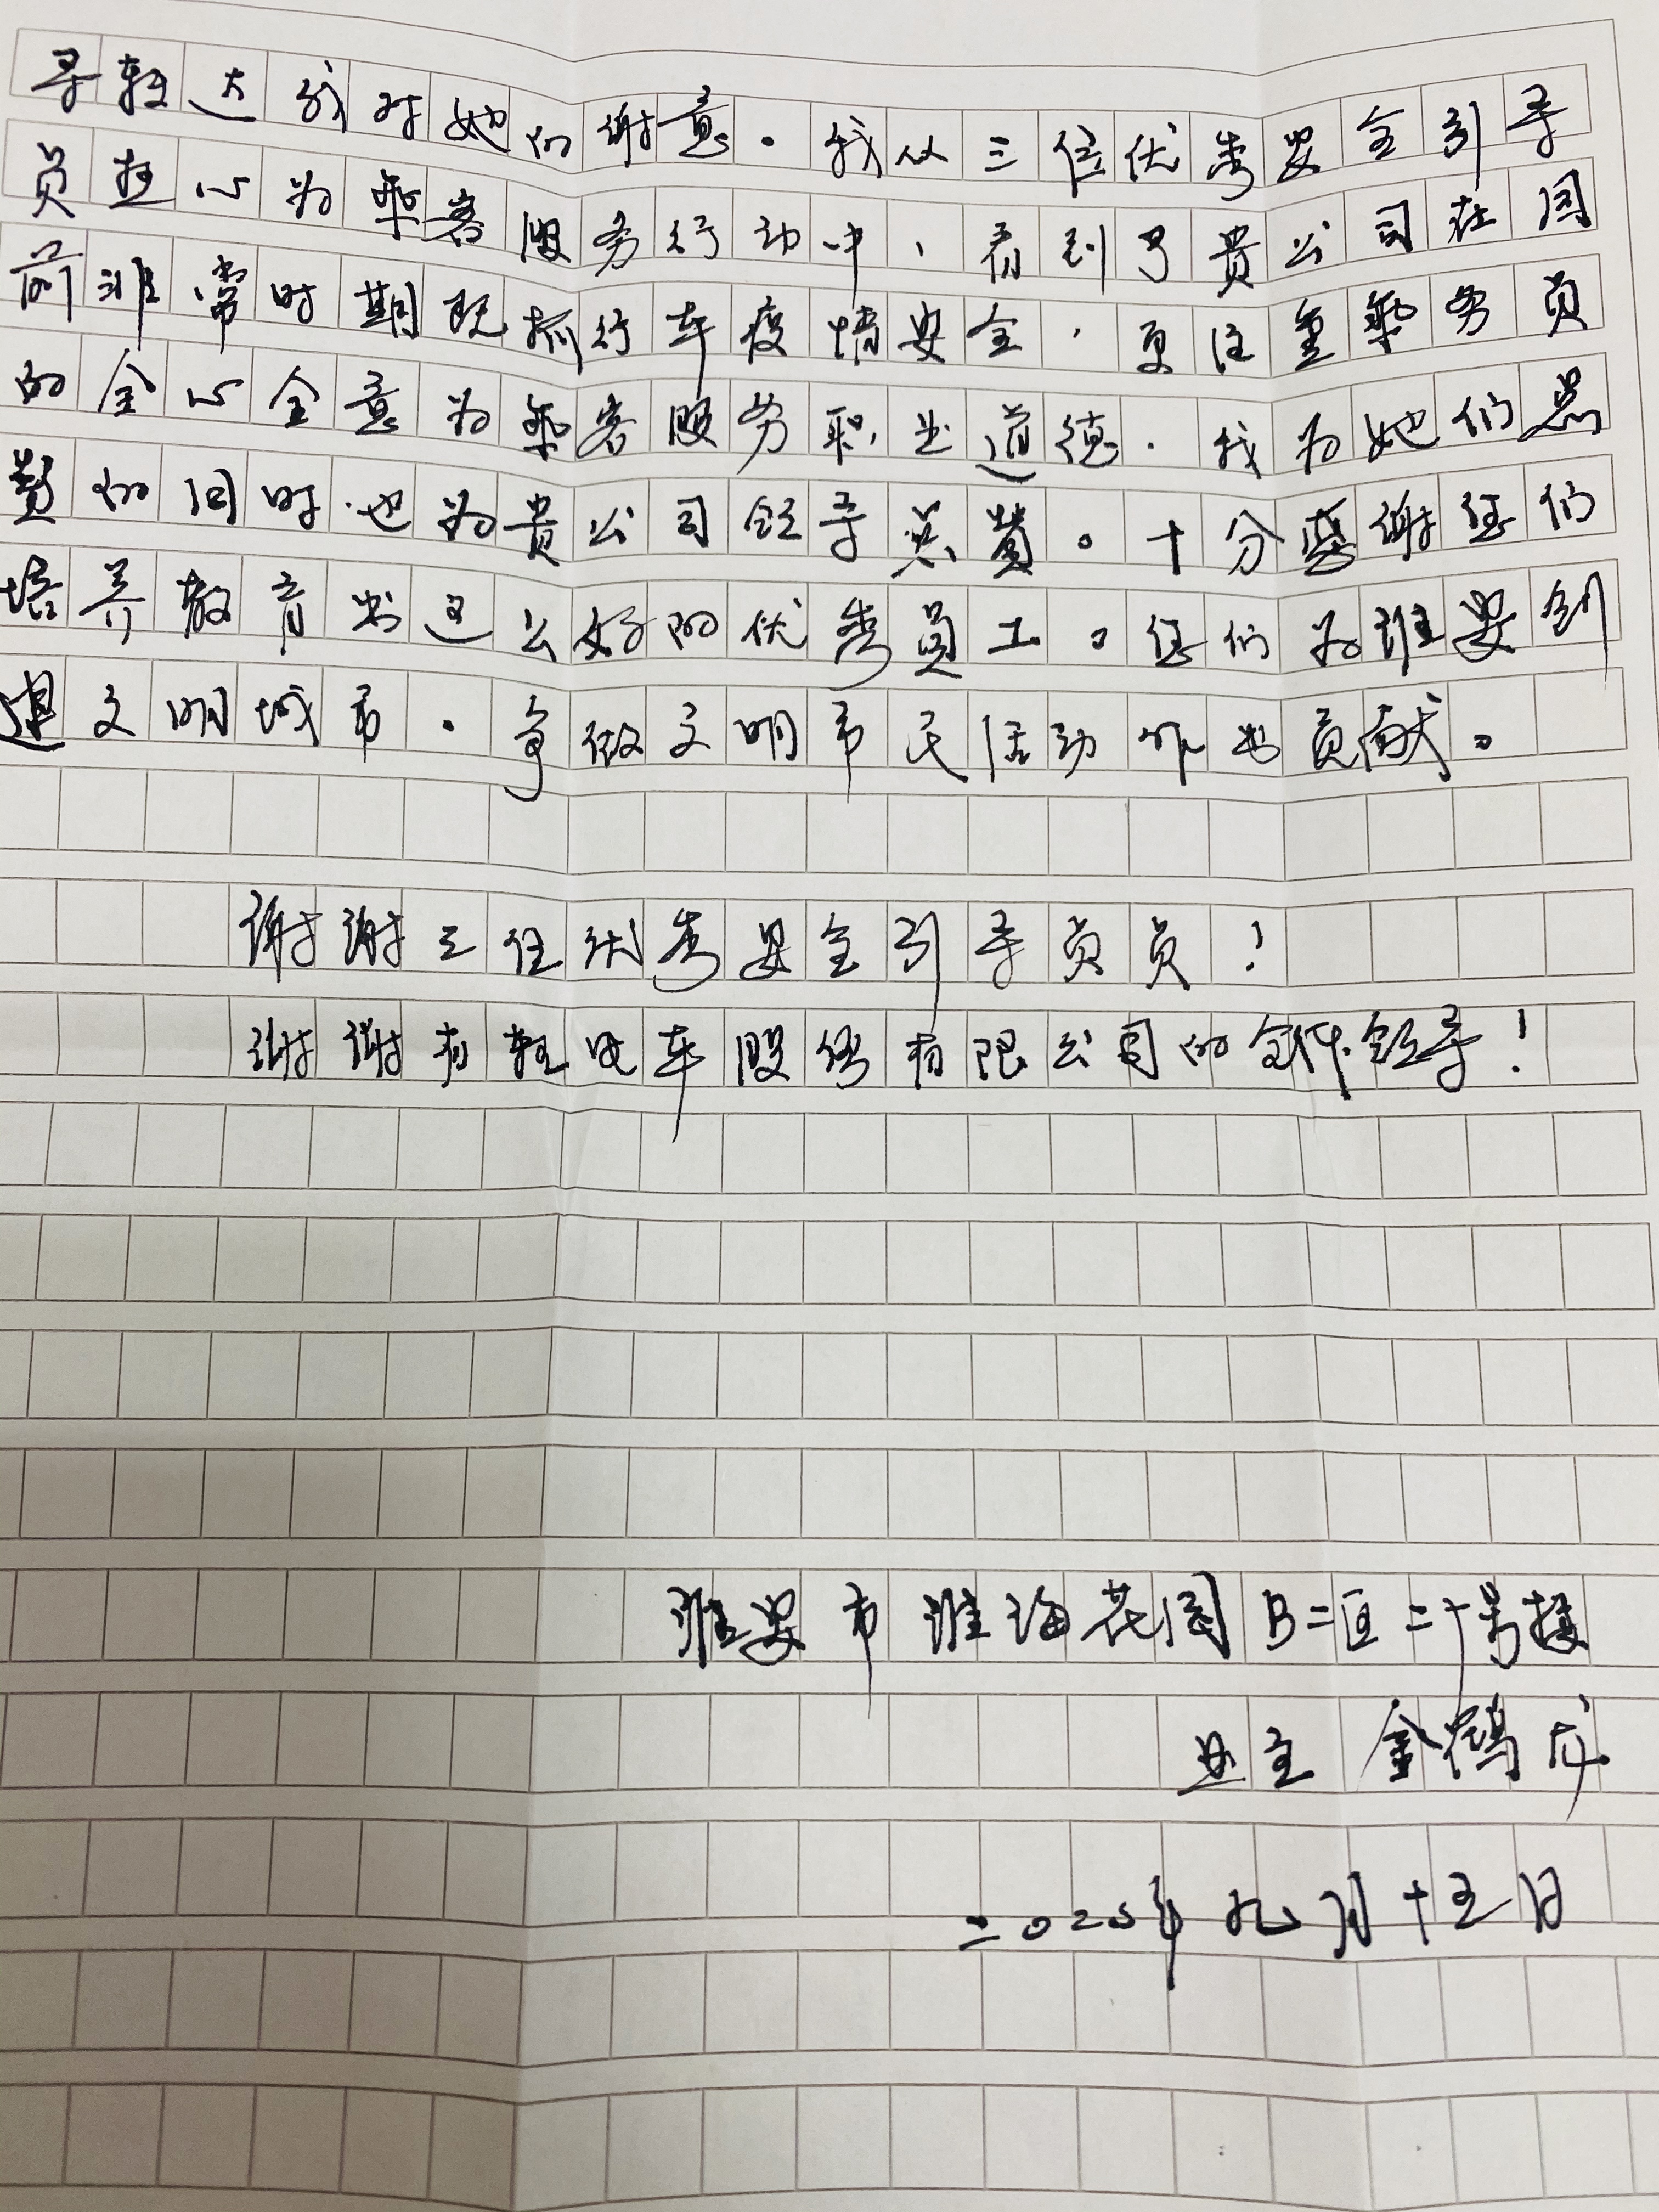 导转达我对她们谢意。我从三位优秀安全引导
员在心为乘客服务行动中,看到了贵公司在目
前非常时期既抓行车疫情安全,更注重乘务员
的全心全意为乘客服务职业道德。我为她们点
赞的同时也为贵公司领导点赞。十分感谢您们
培养教育出这么好的优秀员工。您们为淮安创
建文明城市。争做文明市民活动作出贡献。
谢谢三位优秀安全引导员员!
谢谢有轨电车股份有限公司的全体领导!
淮安市淮海花园B二区二十号楼
业主 金鹤
二020年九月十五日